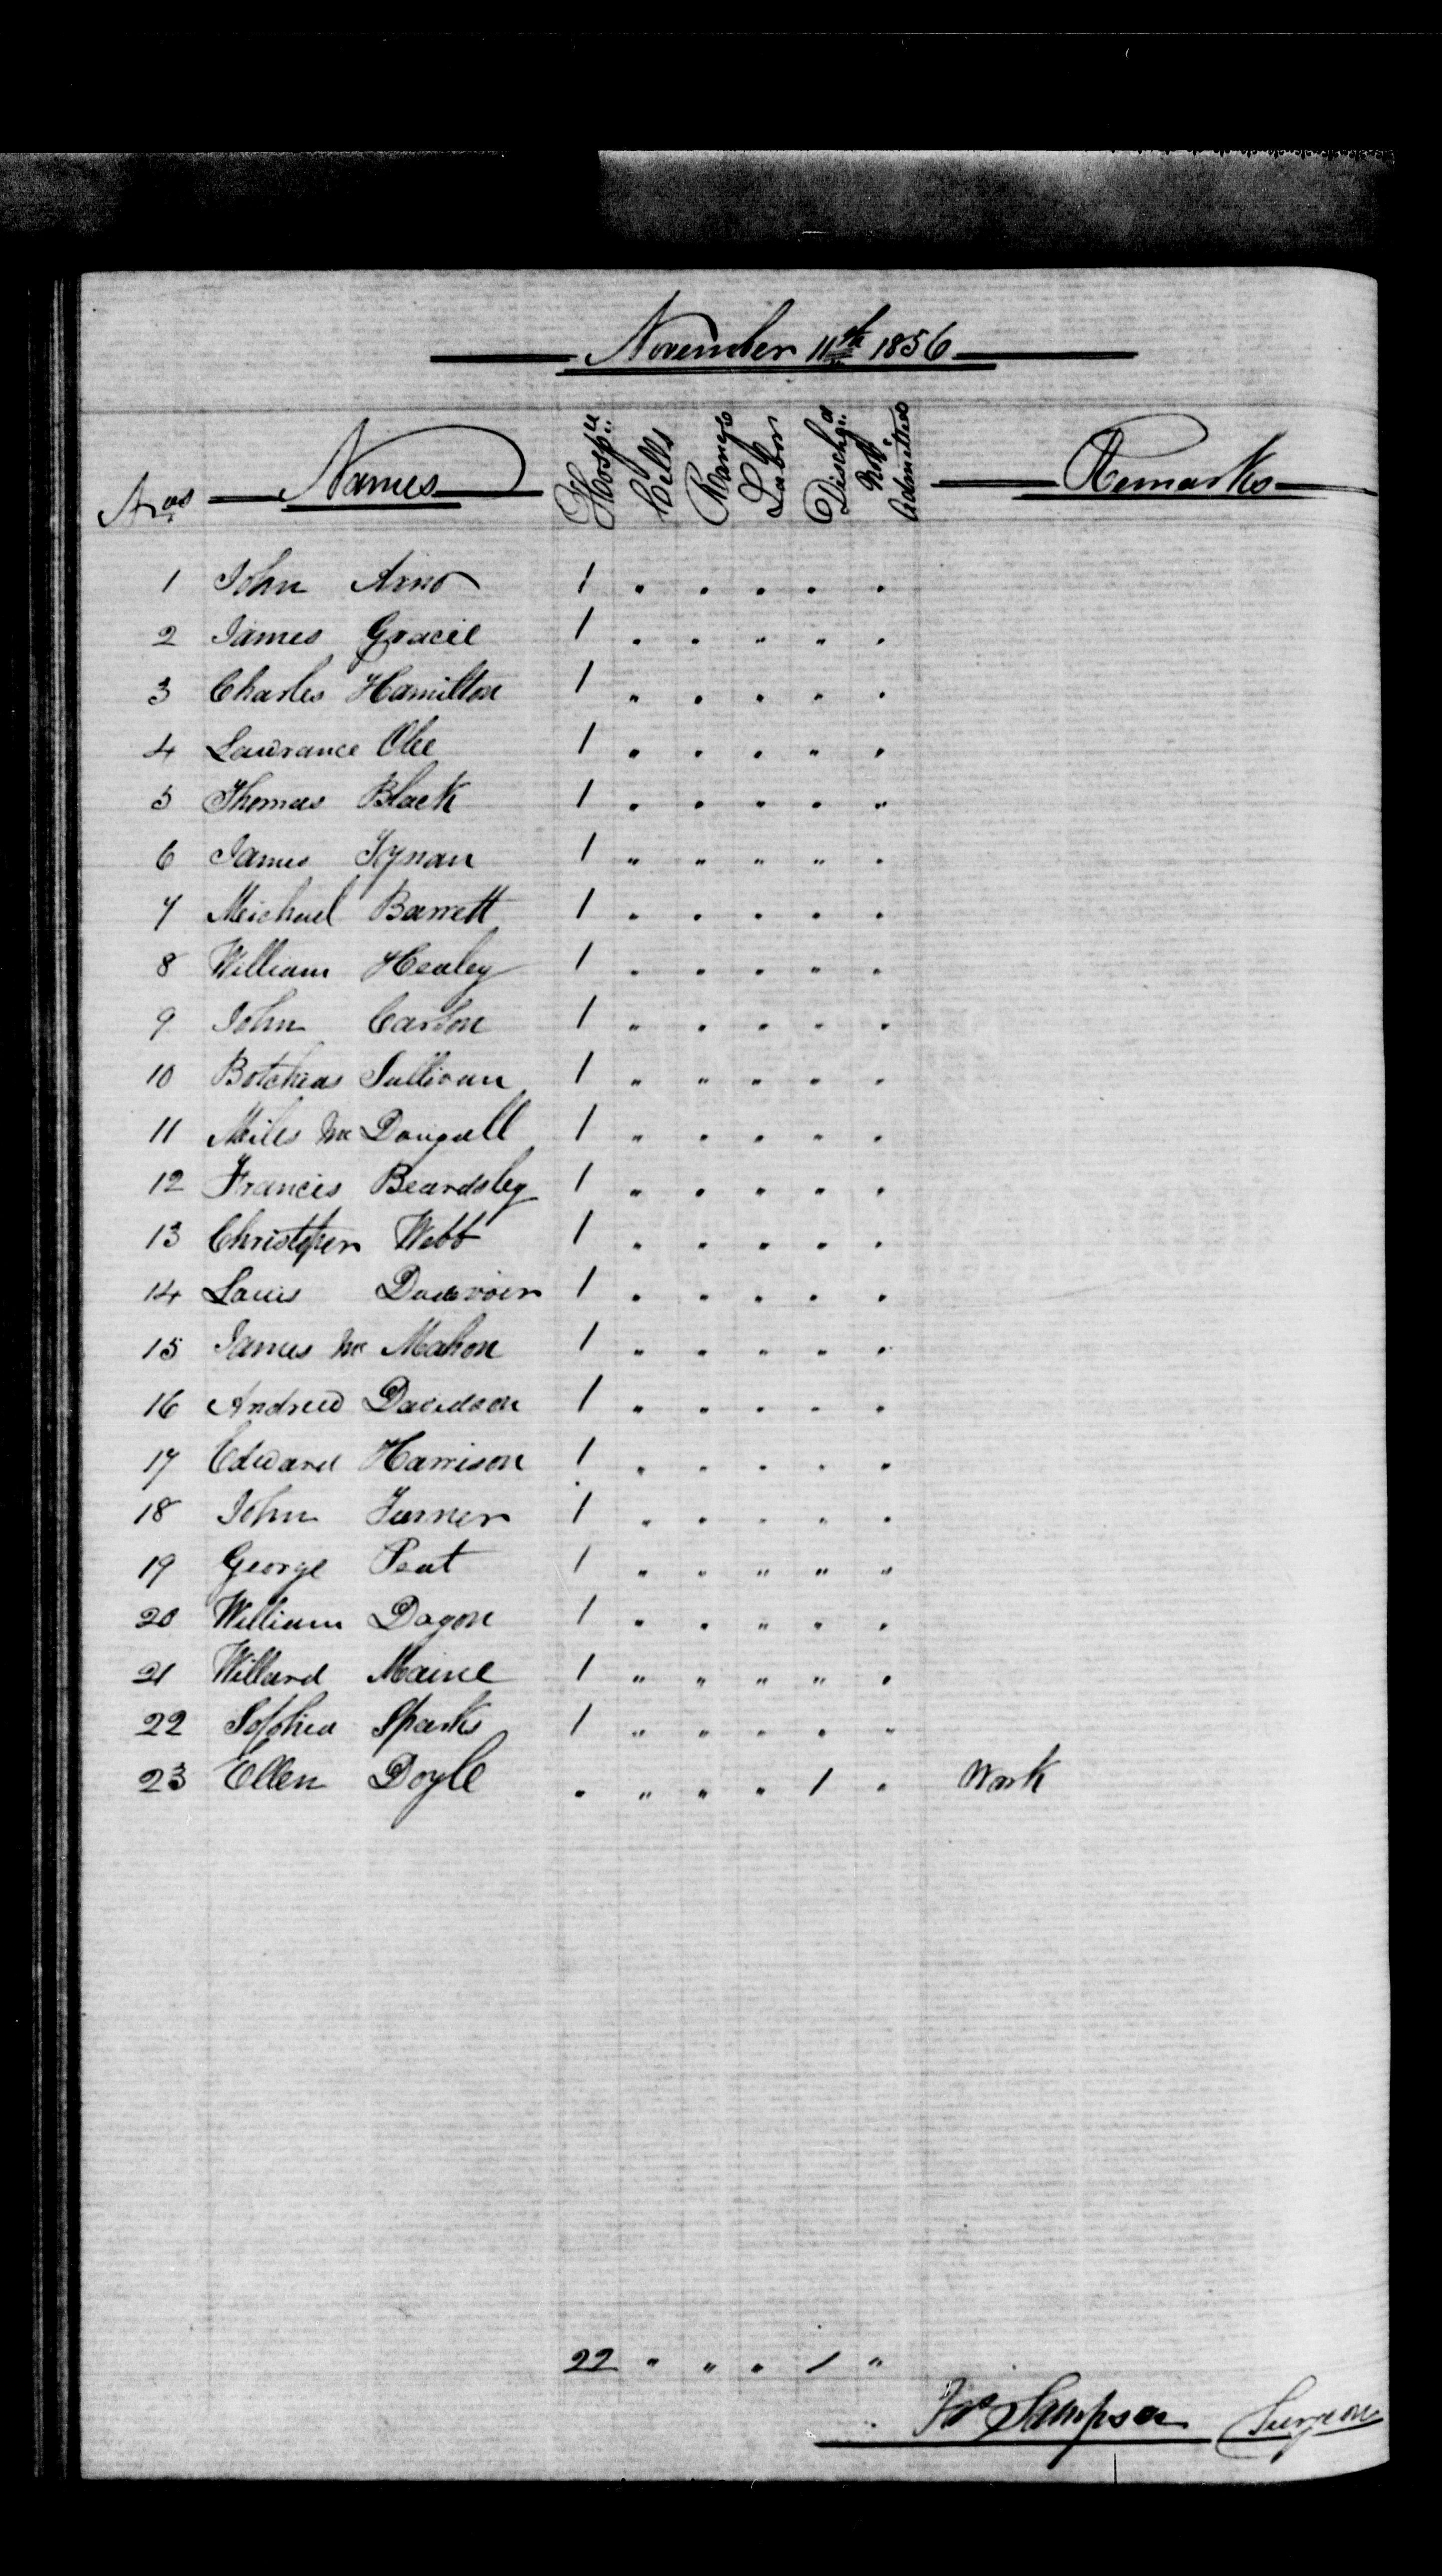 November 11th 1856
Nos Names Hospl Cells Range Labor Dischgd Not Admitted Remarks
1 John Arno 1 " " " " "
2 James Gracie 1 " " " " "
3 Charles Hamilton 1 " " " " "
4 Lawrance Olie 1 " " " " "
5 Thomas Black 1 " " " " "
6 James Tynan 1 " " " " "
7 Meichael Barrett 1 " " " " "
8 William Healey 1 " " " " "
9 John Carbon 1 " " " " "
10 Botchias Sullivan 1 " " " " "
11 Miles Mc Dougall 1 " " " " "
12 Francis Beardsley 1 " " " " "
13 Christopher Webb 1 " " " " "
14 Louis 1 " " " " "
15 James Mc Mahon 1 " " " " "
16 Andrew Davidson 1 " " " " "
17 Edward Harrison 1 " " " " "
18 John Turner 1 " " " " "
19 George Peat 1 " " " " "
20 William Dagon 1 " " " " "
21 Willard Maine 1 " " " " "
22 Sophia Sparks 1 " " " " "
23 Ellen Doyle " " " " 1 " Work
22 " " " 1 "
Jas Sampson Surgeon